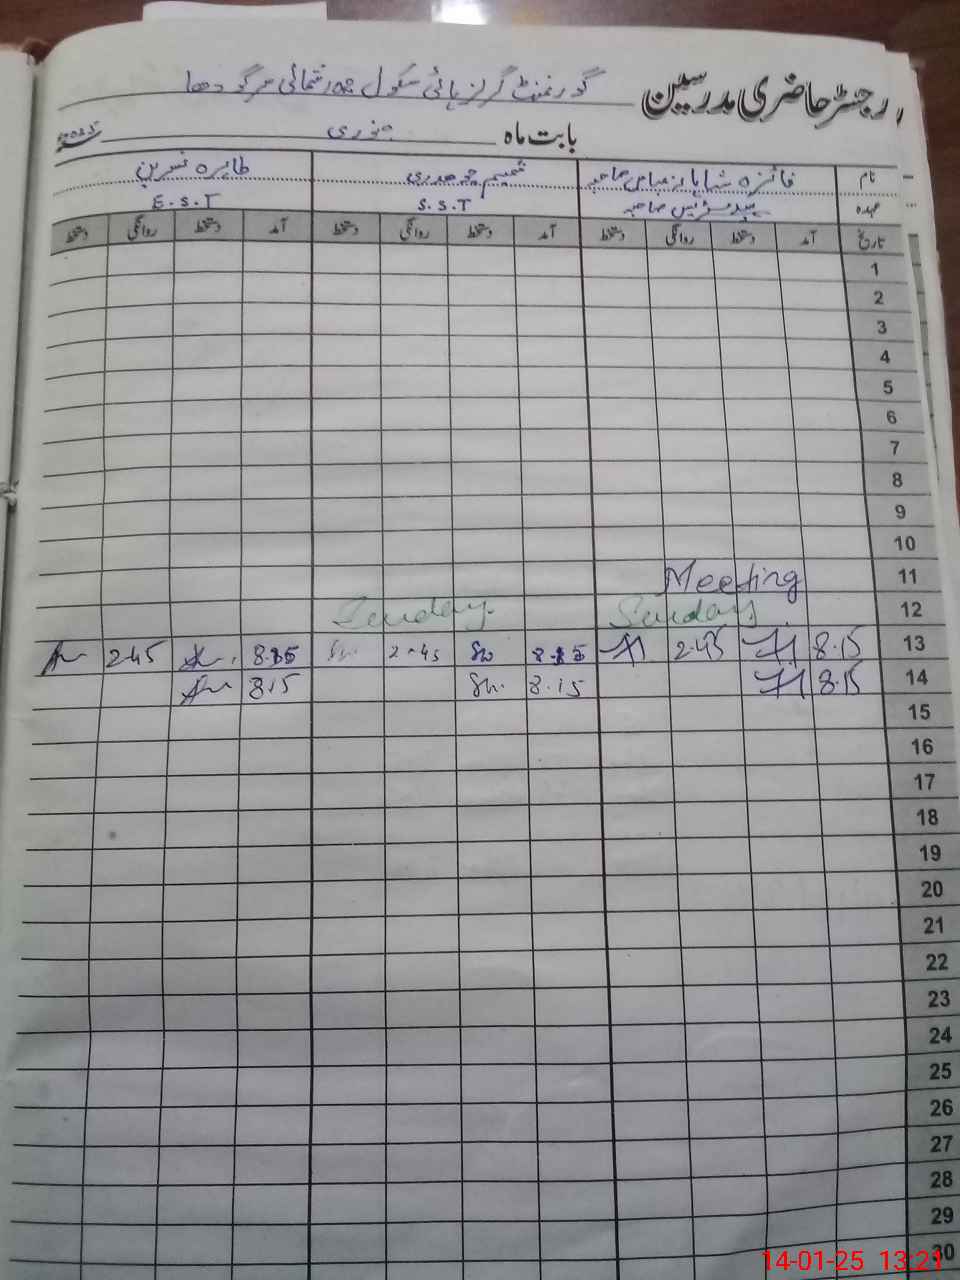 رجسٹر حاضری مدرسین گورنمنٹ گرلز ہائی سکول شمالی سرگودھا
بابت ماہ جنوری 2025
نام فائزہ صاحبہ شمیم چوہدری طاہرہ نسرین
عہدہ ہیڈمسٹریس صاحبہ S.S.T E.S.T
تاریخ آمد دستخط روانگی دستخط آمد دستخط روانگی دستخط آمد دستخط روانگی دستخط
1
2
3
4
5
6
7
8
9
10
11 Meeting
12 Sunday Sunday.
13 8.15 2.45 8.15 Sh 2.45 Sh. 8.15 2.45
14 8.15 8.15 Sh. 8.15
15
16
17
18
19
20
21
22
23
24
25
26
27
28
29
30
14-01-25 13:21